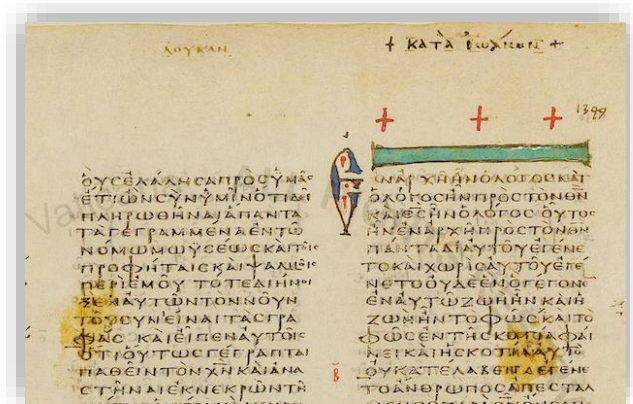 ΛΟΥΚΑΝ
ΟΥϹΕΛΑΛΗϹΑΠΡΟϹΥΜΑϹ
ΕΤΙΩΝϹΥΝΥΜΙΝΟΤΙΔΕΙ
ΠΛΗΡΩΘΗΝΑΙΠΑΝΤΑ
ΤΑΓΕΓΡΑΜΜΕΝΑΕΝΤΩ
ΝΟΜΩΜΩΥϹΕΩϹΚΑΙΤΟΙϹ
ΠΡΟΦΗΤΑΙϹΚΑΙΨΑΛΜΟΙϹ
ΠΕΡΙΕΜΟΥ ΤΟΤΕΔΙΗΝΟΙ
ΞΕΝΑΥΤΩΝΤΟΝΝΟΥΝ
ΤΟΥϹΥΝΕΙΝΑΙΤΑϹΓΡΑ
ΦΑϹ ΚΑΙΕΙΠΕΝΑΥΤΟΙϹ
ΟΤΙΟΥΤΩϹΓΕΓΡΑΠΤΑΙ
ΠΑΘΕΙΝΤΟΝΧΝΚΑΙΑΝΑ
ϹΤΗΝΑΙΕΚΝΕΚΡΩΝΤΗ
+ ΚΑΤᾺ ἸΩΆΝΗΝ +
1349
ΕΝΑΡΧΗΗΝΟΛΟΓΟϹΚΑΙ
ΟΛΟΓΟϹΗΝΠΡΟϹΤΟΝΘΝ
ΚΑΙΘϹΗΝΟΛΟΓΟϹ ΟΥΤΟϹ
ΗΝΕΝΑΡΧΗΠΡΟϹΤΟΝΘΝ
ΠΑΝΤΑΔΙΑΥΤΟΥΕΓΕΝΕ
ΤΟΚΑΙΧΩΡΙϹΑΥΤΟΥΕΓΕ
ΝΕΤΟΟΥΔΕΕΝΟΓΕΓΟΝΕΝ
ΕΝΑΥΤΩΖΩΗΗΝΚΑΙΗ
ΖΩΗΗΝΤΟΦΩϹ ΚΑΙΤΟ
ΦΩϹΕΝΤΗϹΚΟΤΙΑΦΑΙ
ΝΕΙΚΑΙΗϹΚΟΤΙΑΑΥΤΟ
Β
ΟΥΚΑΤΕΛΑΒΕΝΕΓΕΝΕ
ΤΟΑΝΘΡΩΠΟϹΑΠΕϹΤΑΛ